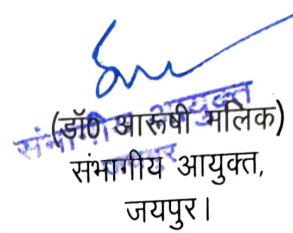 (डॉ0 आरूषी मलिक)
संभागीय आयुक्त
जयपुर
संभागीय आयुक्त,
जयपुर।